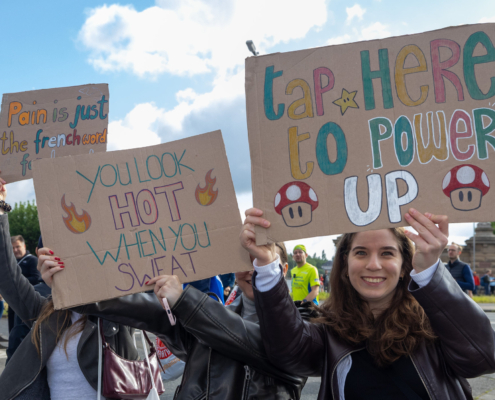 Pain is just
the french word
for
YOU LOOK
HOT
WHEN YOU
SWEAT
tap HeRe
to POWER
UP